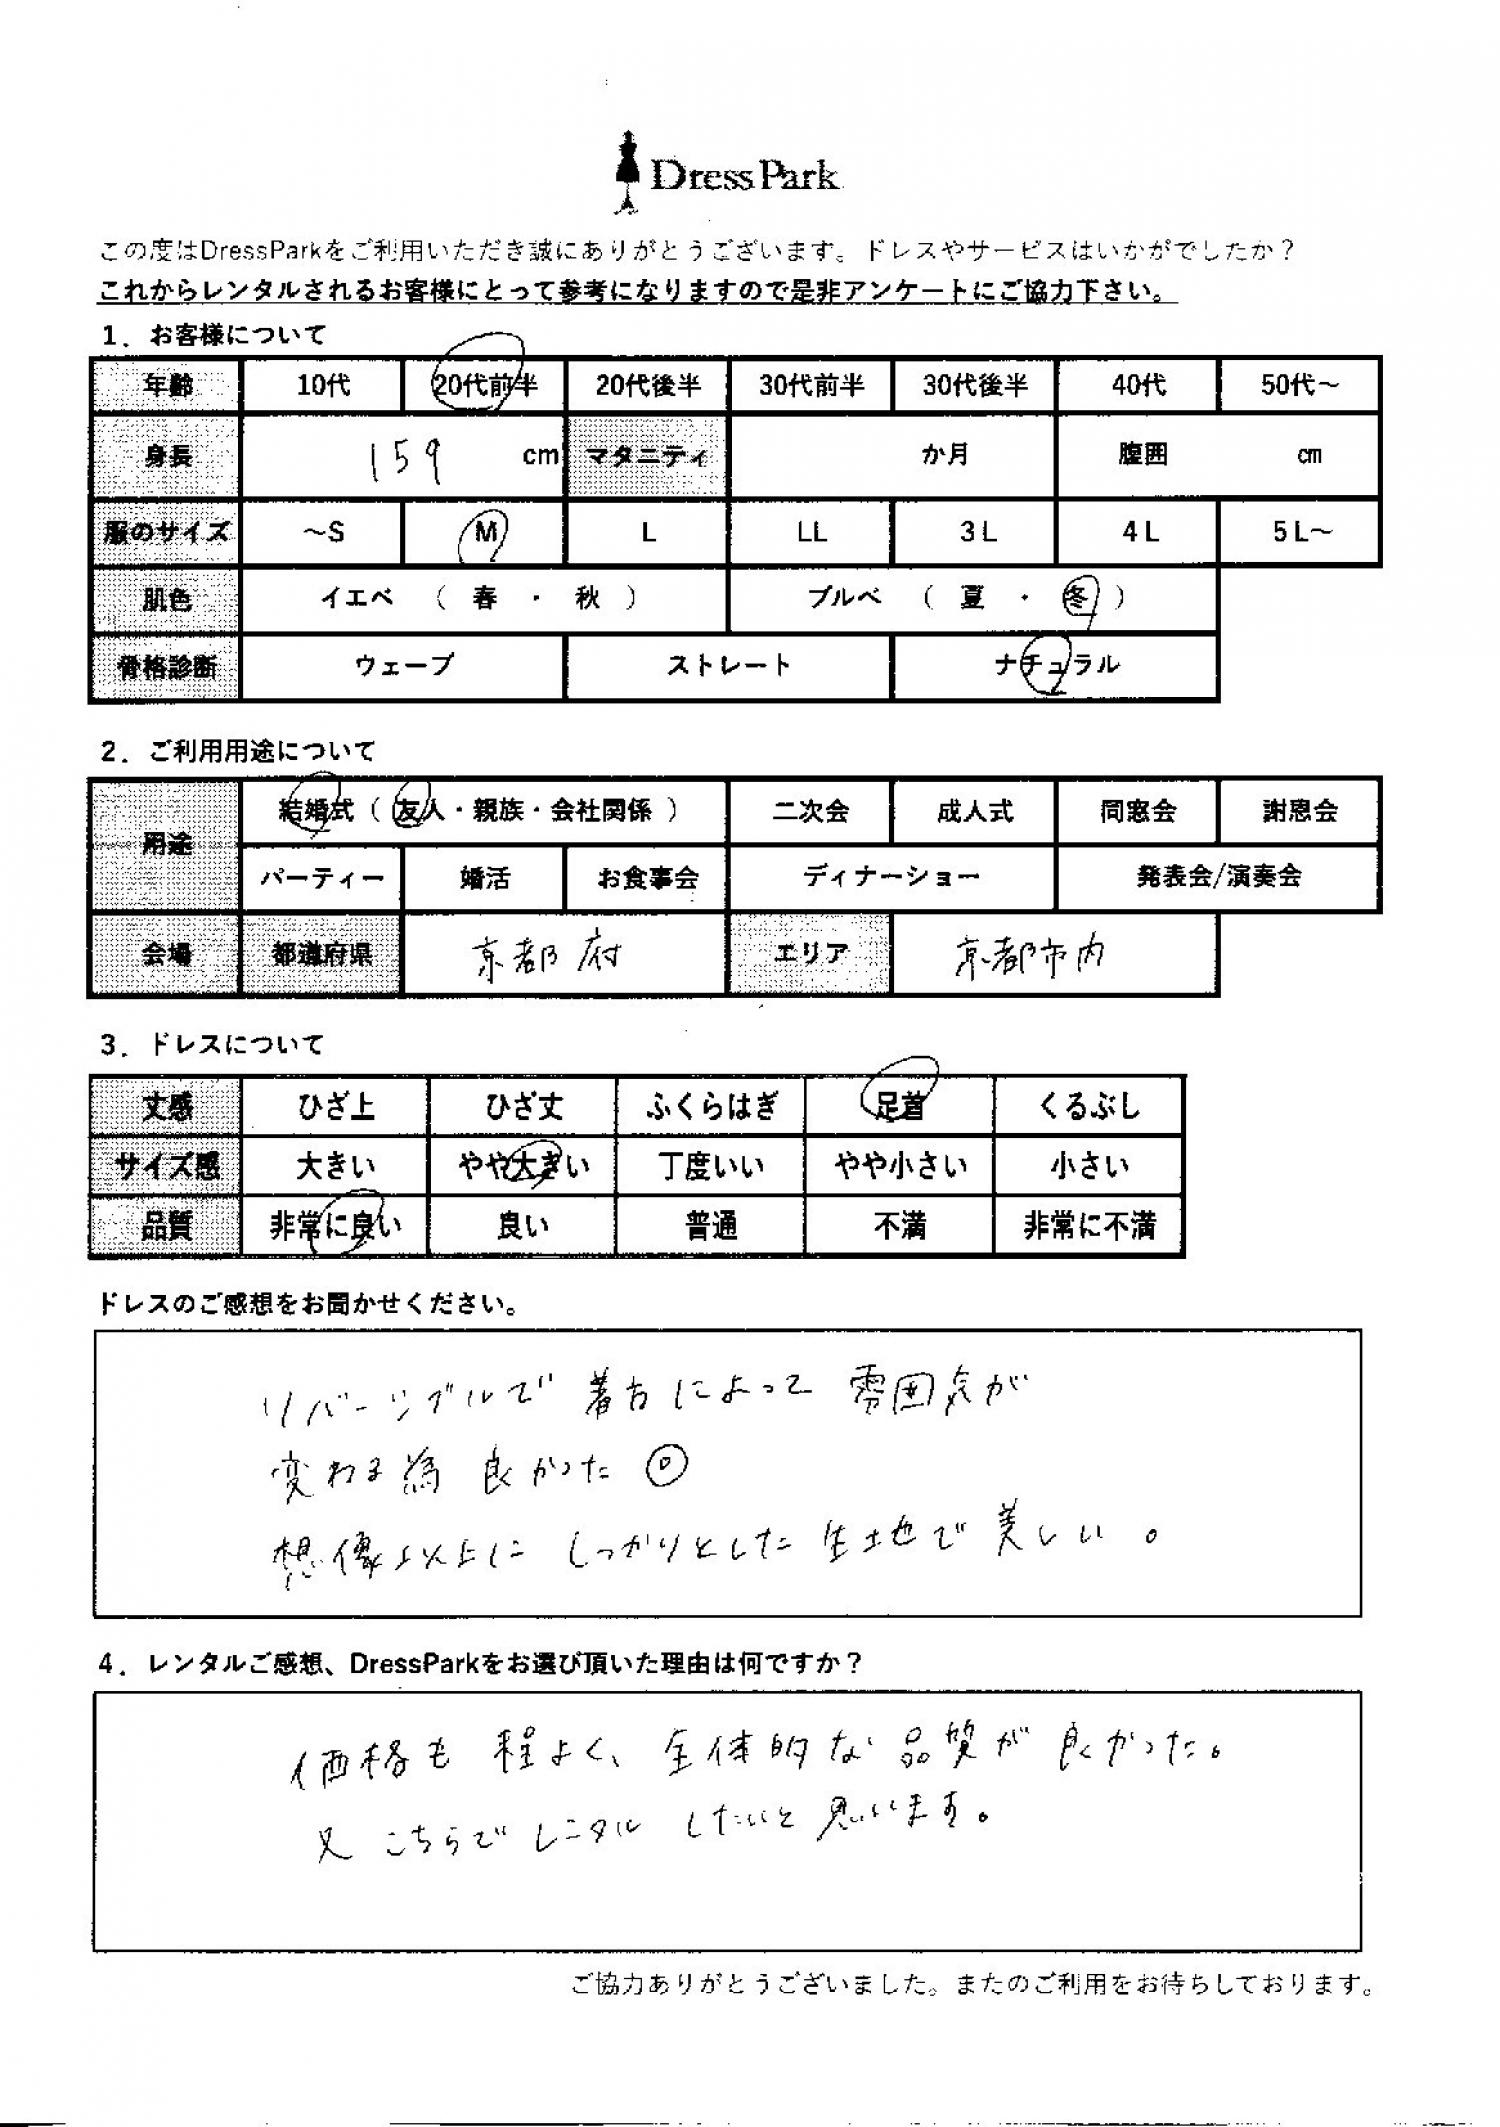 DressPark
この度はDressParkをご利用いただき誠にありがとうございます。ドレスやサービスはいかがでしたか？
これからレンタルされるお客様にとって参考になりますので是非アンケートにご協力下さい。
1．お客様について
年齢 10代 20代前半 20代後半 30代前半 30代後半 40代 50代～
身長 159 cm マタニティ か月 腹囲 cm
服のサイズ ～S M L LL 3L 4L 5L～
肌色 イエベ （ 春 ・ 秋 ） ブルベ （ 夏 ・ 冬 ）
骨格診断 ウェーブ ストレート ナチュラル
2．ご利用用途について
用途 結婚式（ 友人・親族・会社関係 ） 二次会 成人式 同窓会 謝恩会
パーティー 婚活 お食事会 ディナーショー 発表会/演奏会
会場 都道府県 京都府 エリア 京都市内
3．ドレスについて
丈感 ひざ上 ひざ丈 ふくらはぎ 足首 くるぶし
サイズ感 大きい やや大きい 丁度いい やや小さい 小さい
品質 非常に良い 良い 普通 不満 非常に不満
ドレスのご感想をお聞かせください。
リバーシブルで 着方によって 雰囲気が
変わる為 良かった ◎
想像以上に しっかりとした 生地で 美しい。
4．レンタルご感想、DressParkをお選び頂いた理由は何ですか？
価格も 程よく、全体的な 品質が 良かった。
又 こちらで レンタル したいと 思います。
ご協力ありがとうございました。またのご利用をお待ちしております。